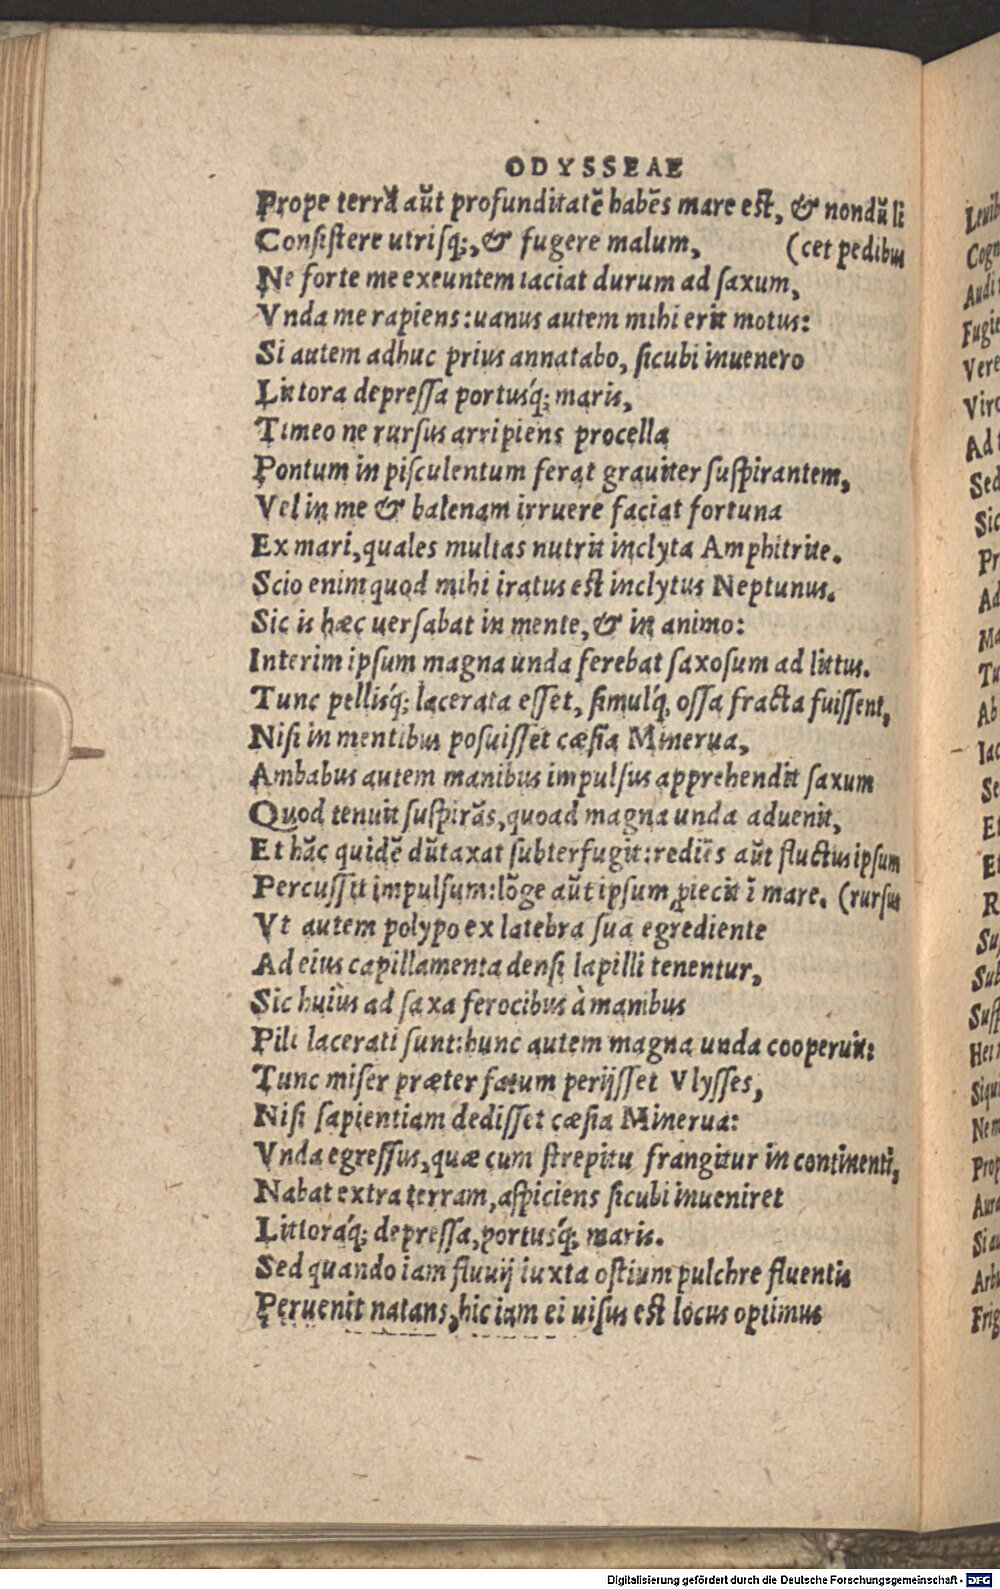 ODYSSEAE
Prope terrā aūt profunditatē habēs mare est, & nondū li
Consistere utrisq;, & fugere malum, (cet pedibus
Ne forte me exeuntem iaciat durum ad saxum,
Vnda me rapiens: uanus autem mihi erit motus:
Si autem adhuc prius annatabo, sicubi inuenero
Littora depressa portusq́; maris,
Timeo ne rursus arripiens procella
Pontum in pisculentum ferat grauiter suspirantem,
Vel in me & balenam irruere faciat fortuna
Ex mari, quales multas nutrit inclyta Amphitrite.
Scio enim quod mihi iratus est inclytus Neptunus.
Sic is hæc uersabat in mente, & in animo:
Interim ipsum magna unda ferebat saxosum ad littus.
Tunc pellisq́; lacerata esset, simulq́; ossa fracta fuissent,
Nisi in mentibus posuisset cæsia Minerua,
Ambabus autem manibus impulsus apprehendit saxum
Quod tenuit suspirās, quoad magna unda aduenit,
Et hāc quidē dūtaxat subterfugit: rediēs aūt fluctus ipsum
Percussit impulsum: lōge aūt ipsum ꝓiecit ī mare. (rursus
Vt autem polypo ex latebra sua egrediente
Ad eius capillamenta densi lapilli tenentur,
Sic huius ad saxa ferocibus à manibus
Pili lacerati sunt: hunc autem magna unda cooperuit:
Tunc miser præter fatum perijsset Vlysses,
Nisi sapientiam dedisset cæsia Minerua:
Vnda egressus, quæ cum strepitu frangitur in continenti,
Nabat extra terram, aspiciens sicubi inueniret
Littoraq́; depressa, portusq́; maris.
Sed quando iam fluuij iuxta ostium pulchre fluentis
Peruenit natans, hic iam ei uisus est locus optimus
Digitalisierung gefördert durch die Deutsche Forschungsgemeinschaft - DFG